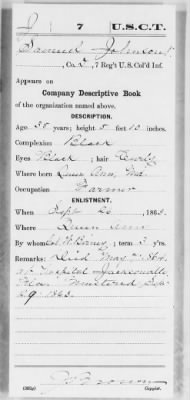 J 7 U.S.C.T.
Samuel Johnson
, Co. D, 7 Reg't U.S. Col'd Inf.
Appears on
Company Descriptive Book
of the organization named above.
DESCRIPTION.
Age 38 years; height 5 feet 10 inches.
Complexion Black
Eyes Black; hair Curly
Where born Queen Ann, Md.
Occupation Farmer
ENLISTMENT.
When Sept 26, 1863.
Where Queen Ann
By whom Col. W. Birney; term 3 yrs.
Remarks: Died May 7" 1864
at Hospital Jacksonville
Fla. Mustered Sept
29 1863.
Copyist.